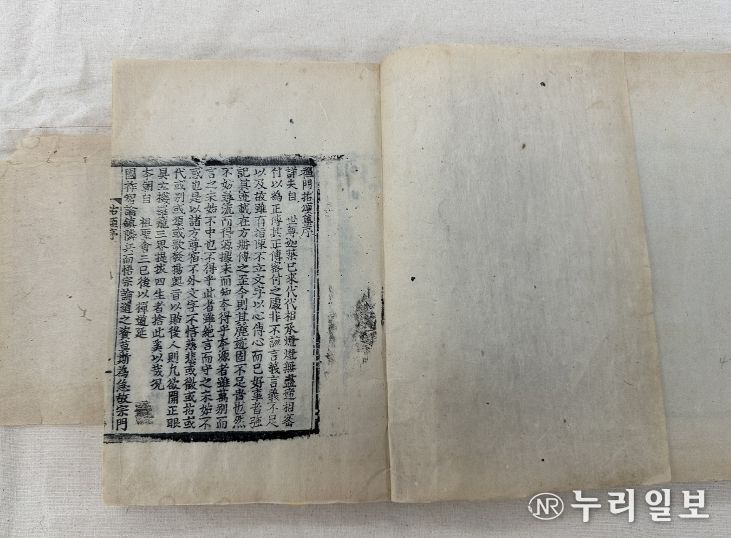 禪門拈頌集序
詳夫自 世尊迦葉已來代代相承燈燈無盡遞相密
付以爲正傳其正傳密付之處非不該言義言義不足
以及故雖有指陳不立文字以心傳心而已好事者強
記其迹載在方冊傳之至今則其麁迹固不足貴也然
不妨尋流而得源據末而知本得乎本源者雖萬別而
言之未始不中也不得乎此者雖絶言而守之未始不
惑也是以諸方尊宿不外文字不悋慈悲或徵或拈或
代或別或頌或歌發揚奧旨以貽後人則凡欲開正眼
具玄機羅籠三界提拔四生者捨此奚以哉況
本朝自 祖聖會三已後以禪道延
國祚智論鎭隣兵而悟宗論道之資莫斯爲急故宗門
拈頌序
NR 누리일보